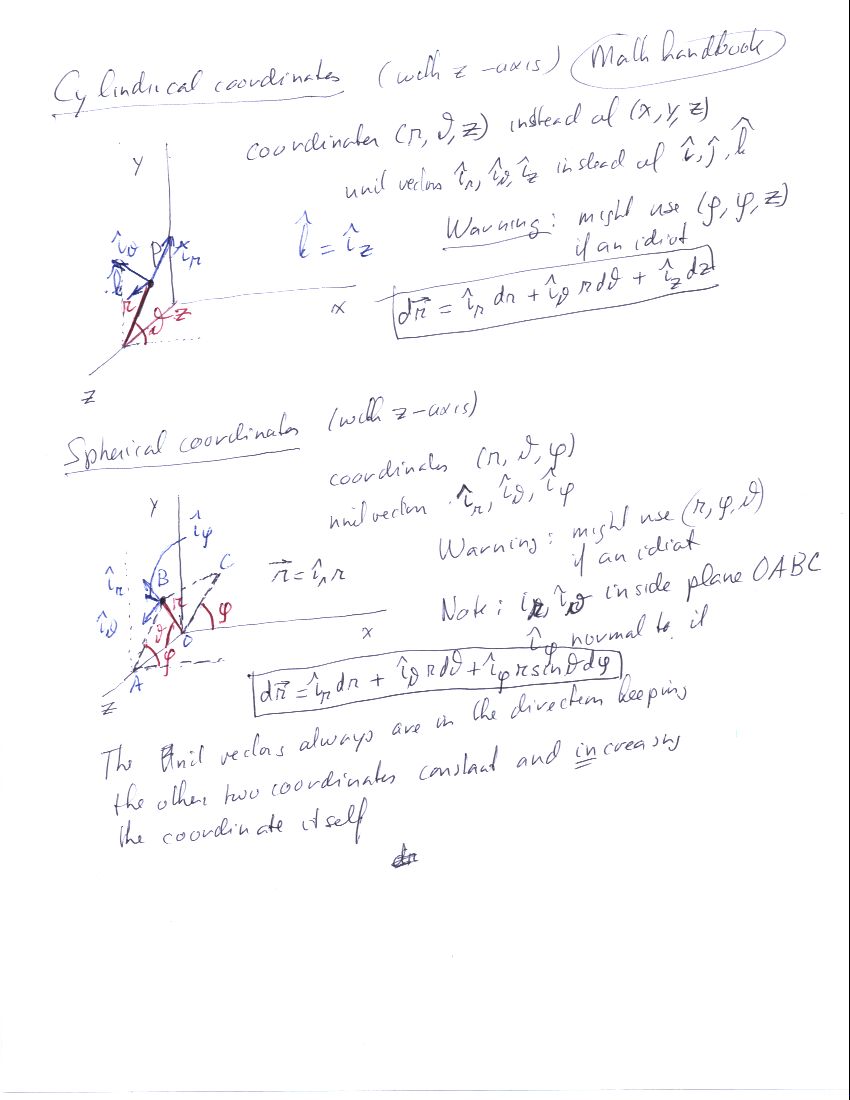 Cylindrical coordinates (with z-axis) Math handbook
coordinates (r, ϑ, z) instead of (x, y, z)
unit vectors î_r, î_ϑ, î_z instead of î, ĵ, k̂
k̂ = î_z
Warning: might use (ρ, φ, z)
if an idiot
dr⃗ = î_r dr + î_ϑ r dϑ + î_z dz
y
î_ϑ
P
î_r
k̂
r
ϑ
z
x
z
Spherical coordinates (with z-axis)
coordinates (r, ϑ, φ)
unit vectors î_r, î_ϑ, î_φ
Warning: might use (r, φ, ϑ)
if an idiot
r⃗ = î_r r
Note: î_r, î_ϑ inside plane OABC
î_φ normal to it
y
î_φ
î_r
B
C
î_ϑ
r
ϑ
φ
φ
O
x
A
z
dr⃗ = î_r dr + î_ϑ r dϑ + î_φ r sinϑ dφ
The unit vectors always are in the direction keeping
the other two coordinates constant and increasing
the coordinate itself